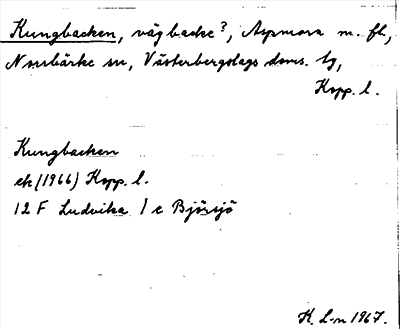 Kungbacken, vägbacke?, Aspmora m. fl,
Norrbärke sn, Västerbergslags doms. tg,
Kopp. l.
Kungbacken
ek (1966) Kopp. l.
12 F Ludvika 1 c Björsjö
K. L-n 1967.